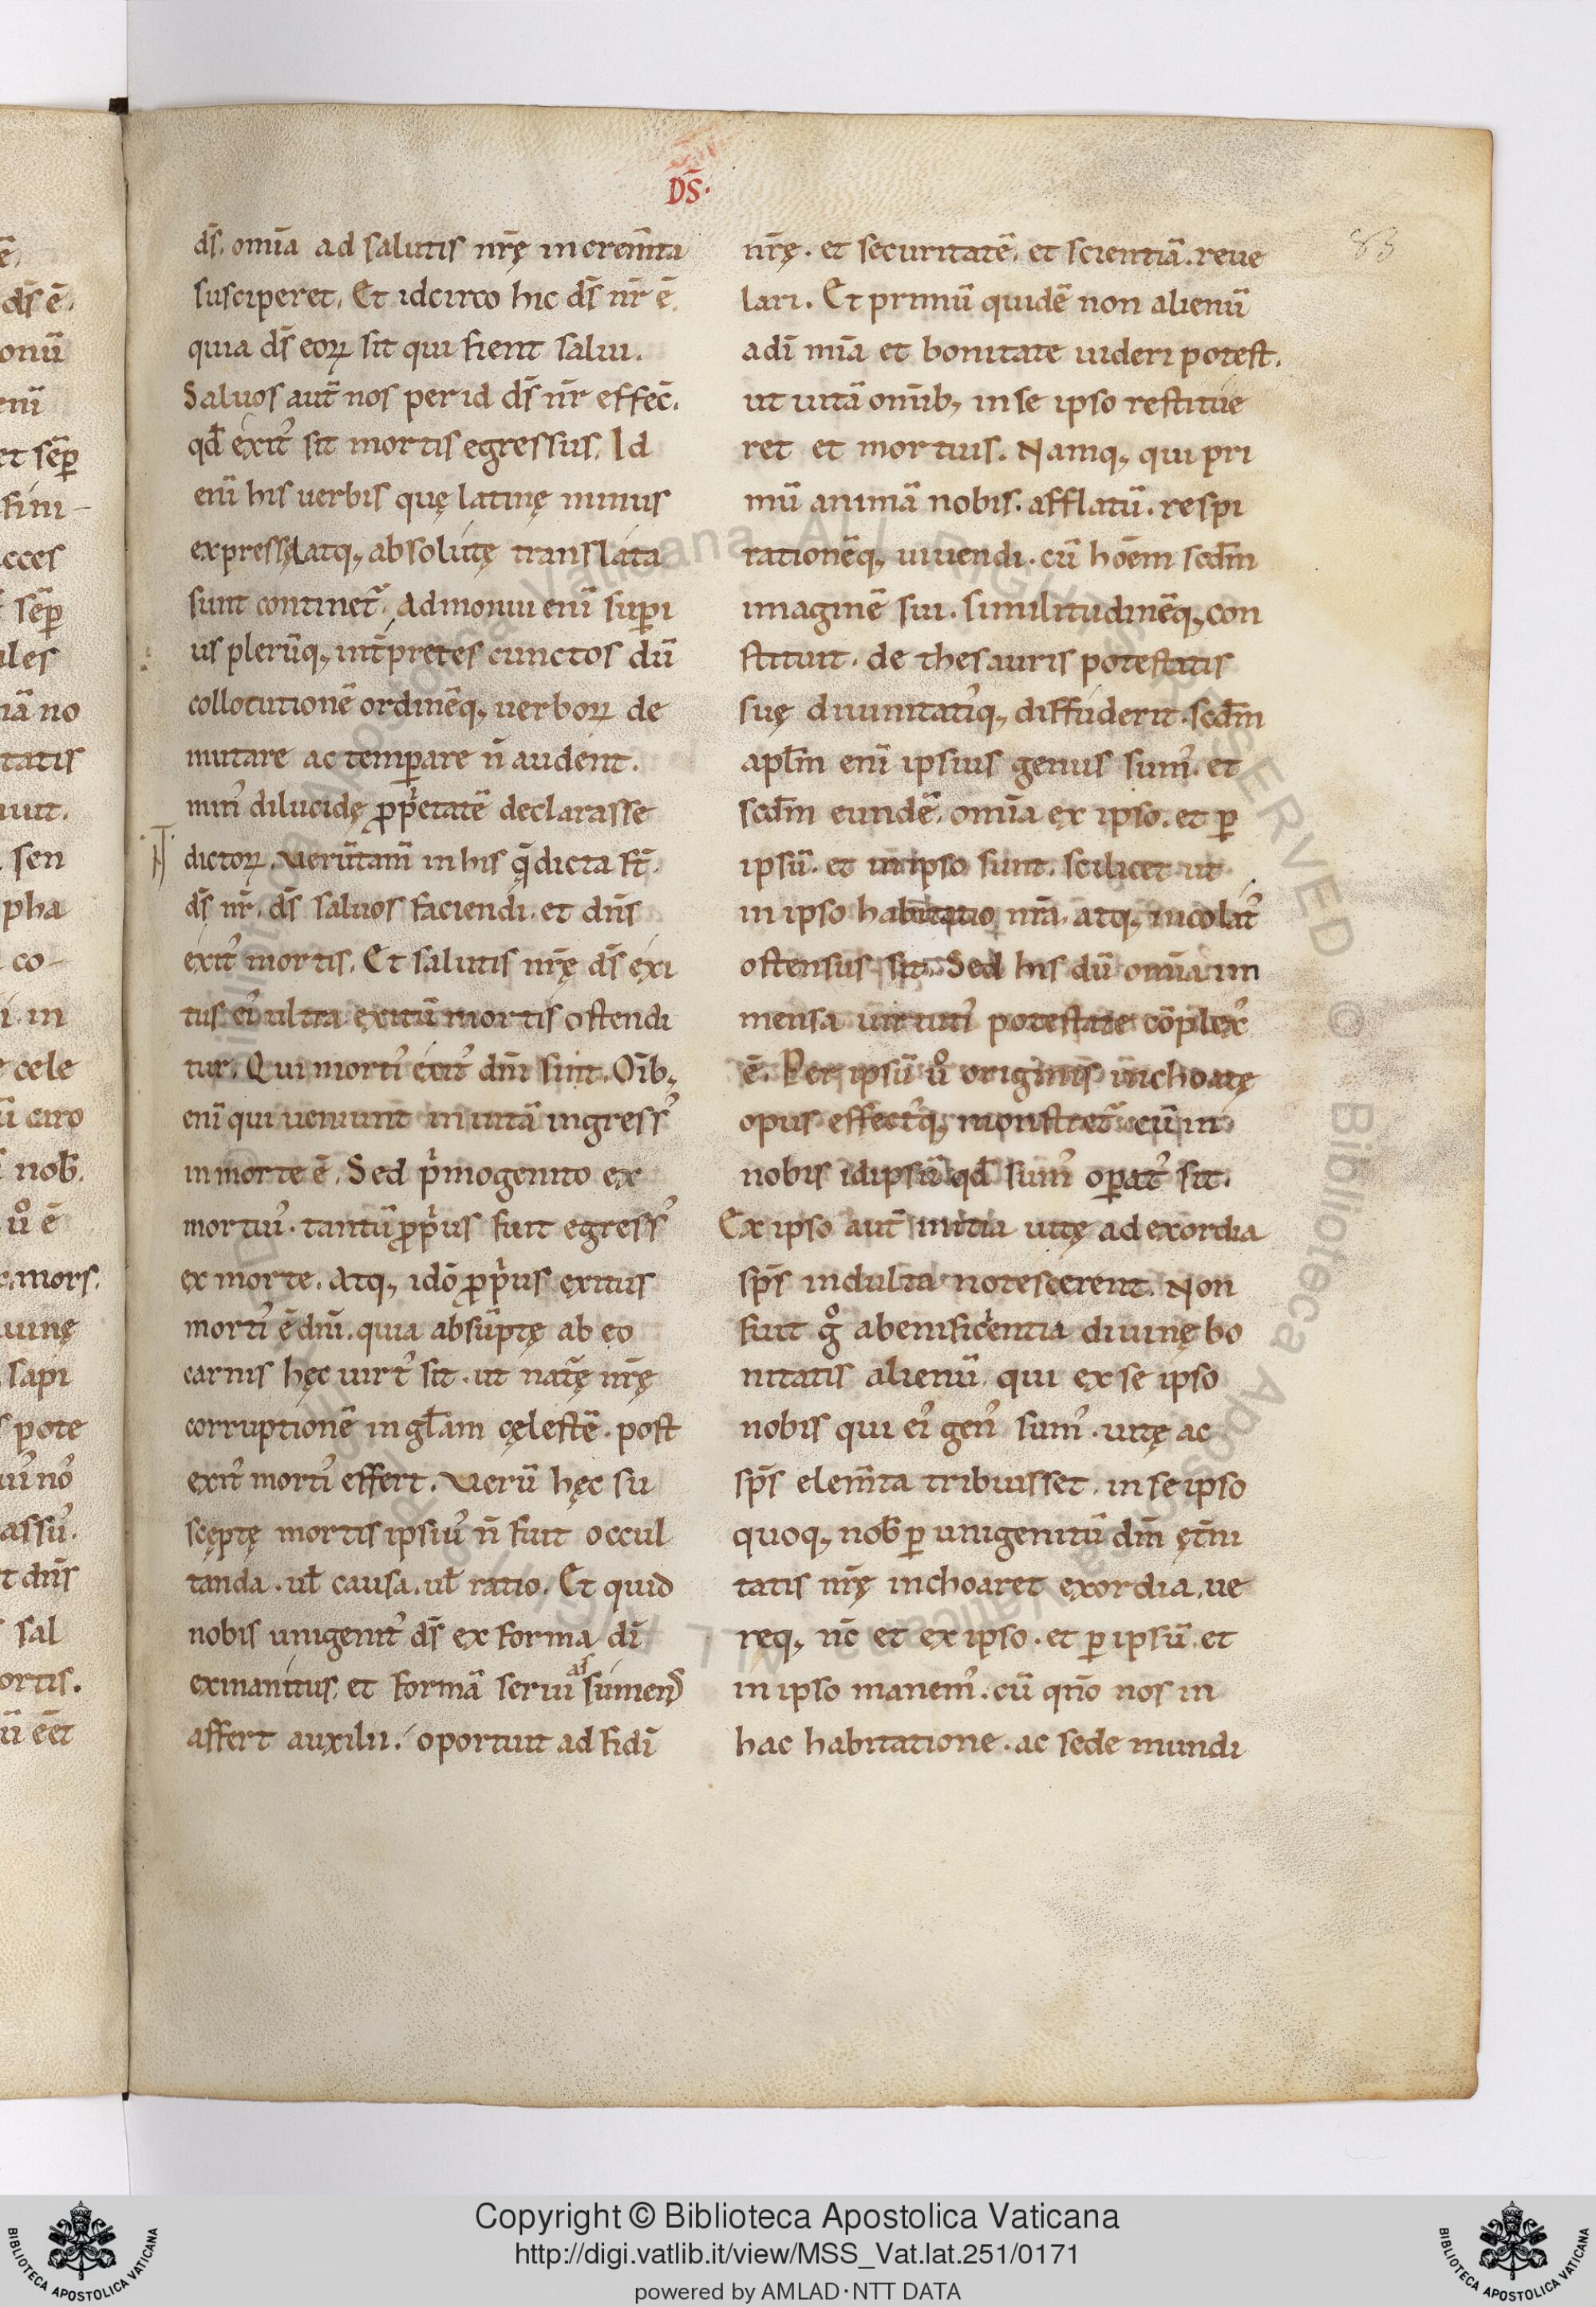 DS̄.
83
ds̄. om̄ia ad salutis nr̄ę increm̄ta
susciperet. Et idcirco hic ds̄ nr̄ ē.
quia ds̄ eoꝝ sit qui fient salui.
Saluos aut̄ nos per id ds̄ nr̄ effec̄.
qd̄ exit᾿ sit mortis egressus. Id
enī his uerbis quę latinę minus
expressę atq, absolutę translata
sunt continet᷑. Admonui enī supi
us plerūq, int̄pretes cunctos dū
collocutionē ordinēq, uerboꝝ de
mutare ac temꝑare n̄ audent.
min᾿ dilucidę ꝓpⁱetatē declarasse
dictoꝝ. Verūtam̄ in his q̨̄ dicta st̄.
ds̄ nr̄. ds̄ saluos faciendi. et dn̄s
exit᾿ mortis. Et salutis nr̄ę ds̄ exi
tus ei᾿ ultra exitū mortis ostendi
tur. Qui morti᾿ exit᾿ dn̄i sint. Oīb,
enī qui ueniunt in uitā ingress᾿
in morte ē. Sed pⁱmogenito ex
mortui᾿. tantū ꝓpⁱus fuit egress᾿
ex morte. Atq, idō ꝓpⁱus exitus
morti᾿ ē dn̄i. quia absūptę ab eo
carnis hęc uirt᾿ sit. ut nat᷑ę nr̄ę
corruptionē in gl̄am cęlestē. post
exit᾿ morti᾿ effert. Verū hęc su
scęptę mortis ipsiu᾿ n̄ fuit occul
tanda. ul̄ causa. ul̄ ratio. Et quid
nobis unigenit᾿ ds̄ ex forma dī
exinanitus. et formā serui as sumend᾿
affert auxilii. oportuit ad fidī
nr̄ę. et securitatē. et scientiā. reue
lari. Et primū quidē non alienū
a dī mīa et bonitate uideri potest.
ut uitā omīb, in se ipso restitue
ret et mortuis. Namq, qui pri
mū animā nobis. afflatū. respi
rationēq, uiuendi. cū hoēm scd̄m
imaginē sui. similitudinēq, con
stituit. de thesauris potestatis
suę diuinitati᾿q, diffuderit. scd̄m
apl̄m enī ipsius genus sum᾿. et
scd̄m eundē. om̄ia ex ipso. et ꝑ
ipsū. et in ipso sunt. scilicet ut
in ipso habitatio nr̄a. atq, incolat᾿
ostensus sit. Sed his dū omīa im
mensa uirtuti᾿ potestate cōplex᾿
ē. Per ipsū u͛o originis inchoatę
opus effect᾿q, monstret᷑ cū in
nobis idipsū qd̄ sum᾿ oꝑat᾿ sit.
Ex ipso aut̄ initia uitę ad exordia
sp̄s indulta notescerent. Non
fuit g͛o a benificientia diuinę bo
nitatis alienū qui ex se ipso
nobis qui ei᾿ gen᾿ sum᾿. uitę ac
sp̄s elem̄ta tribuisset. in se ipso
quoq, nob̄ ꝑ unigenitū dm̄ ęt̄ni
tatis nr̄ę inchoaret exordia. ue
req, nc̄ et ex ipso. et ꝑ ipsū. et
in ipso manem᾿. cū qn̄o nos in
hac habitatione. ac sede mundi
Copyright © Biblioteca Apostolica Vaticana
http://digi.vatlib.it/view/MSS_Vat.lat.251/0171
powered by AMLAD·NTT DATA
BIBLIOTECA APOSTOLICA VATICANA
BIBLIOTECA APOSTOLICA VATICANA